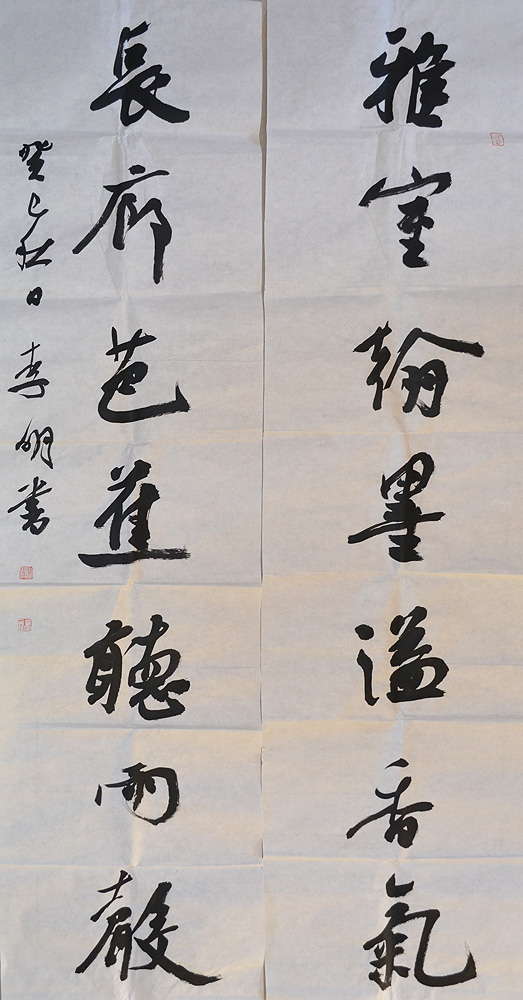 雅室翰墨溢香氣
長廊芭蕉聽雨聲
癸巳秋日李明書